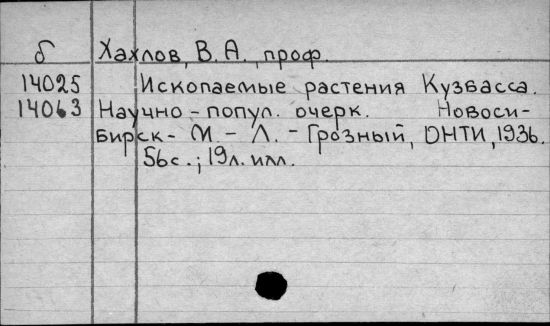 б Хахлов, В. А., проф.
14025 Ископаемые растения Кузбасса.
14063 Научно-попул. очерк. Новоси-
бирск - М - Л. - Грозный, ОНТИ, 1936.
56с.; 19л. илл.